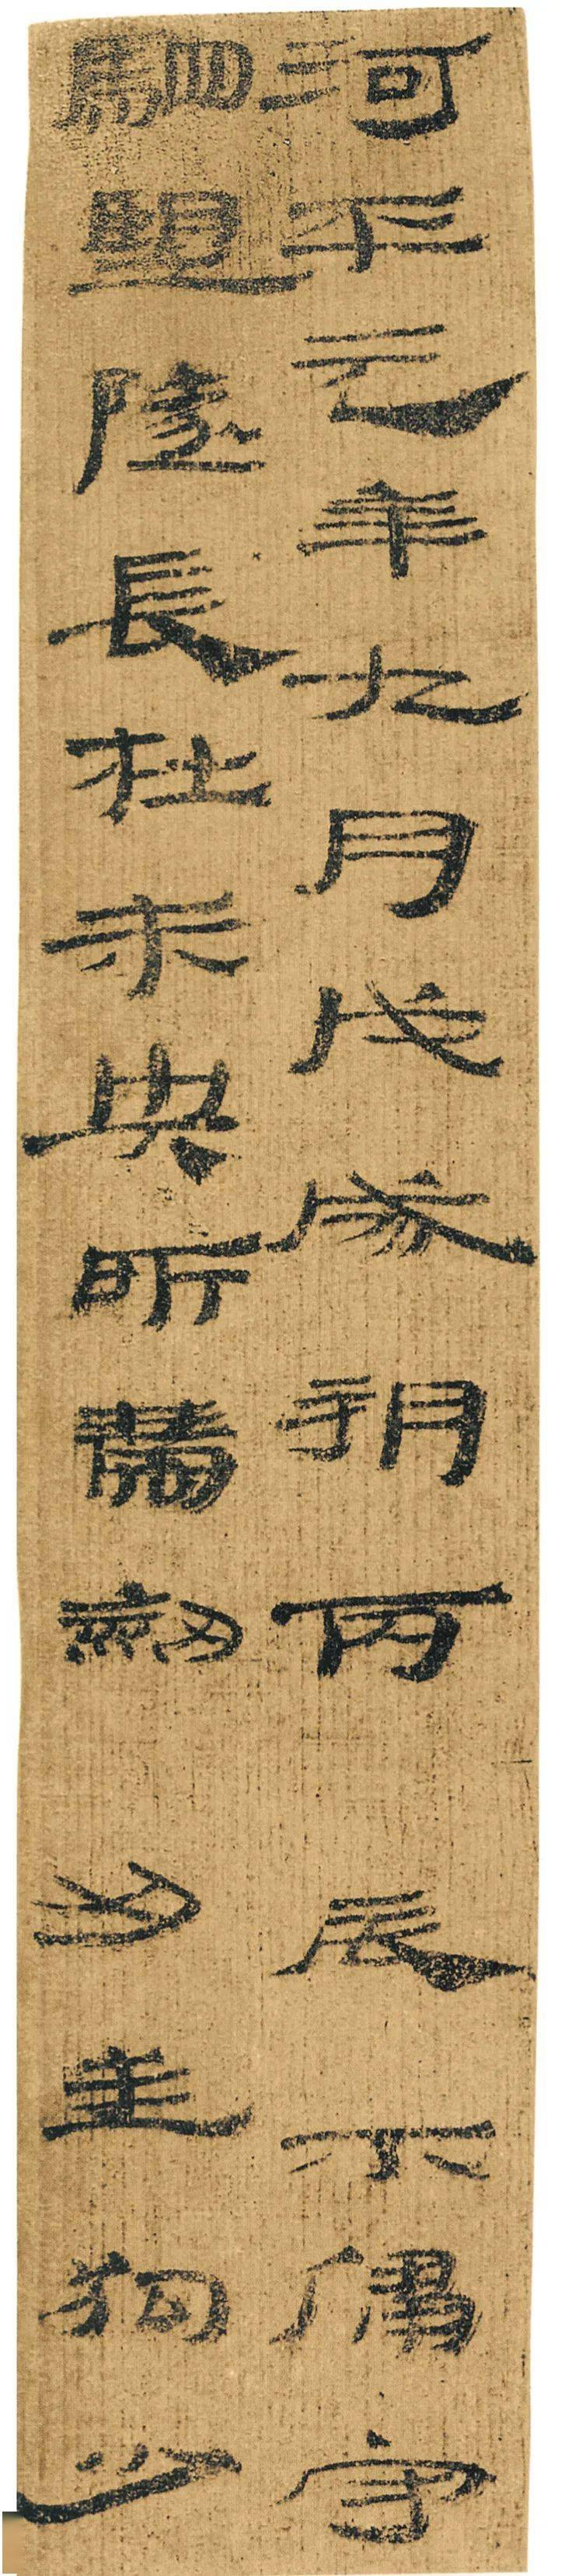 河平元年九月戊戌朔丙辰不侵守
駟望隧長杜未央所帶劍刃生狗少